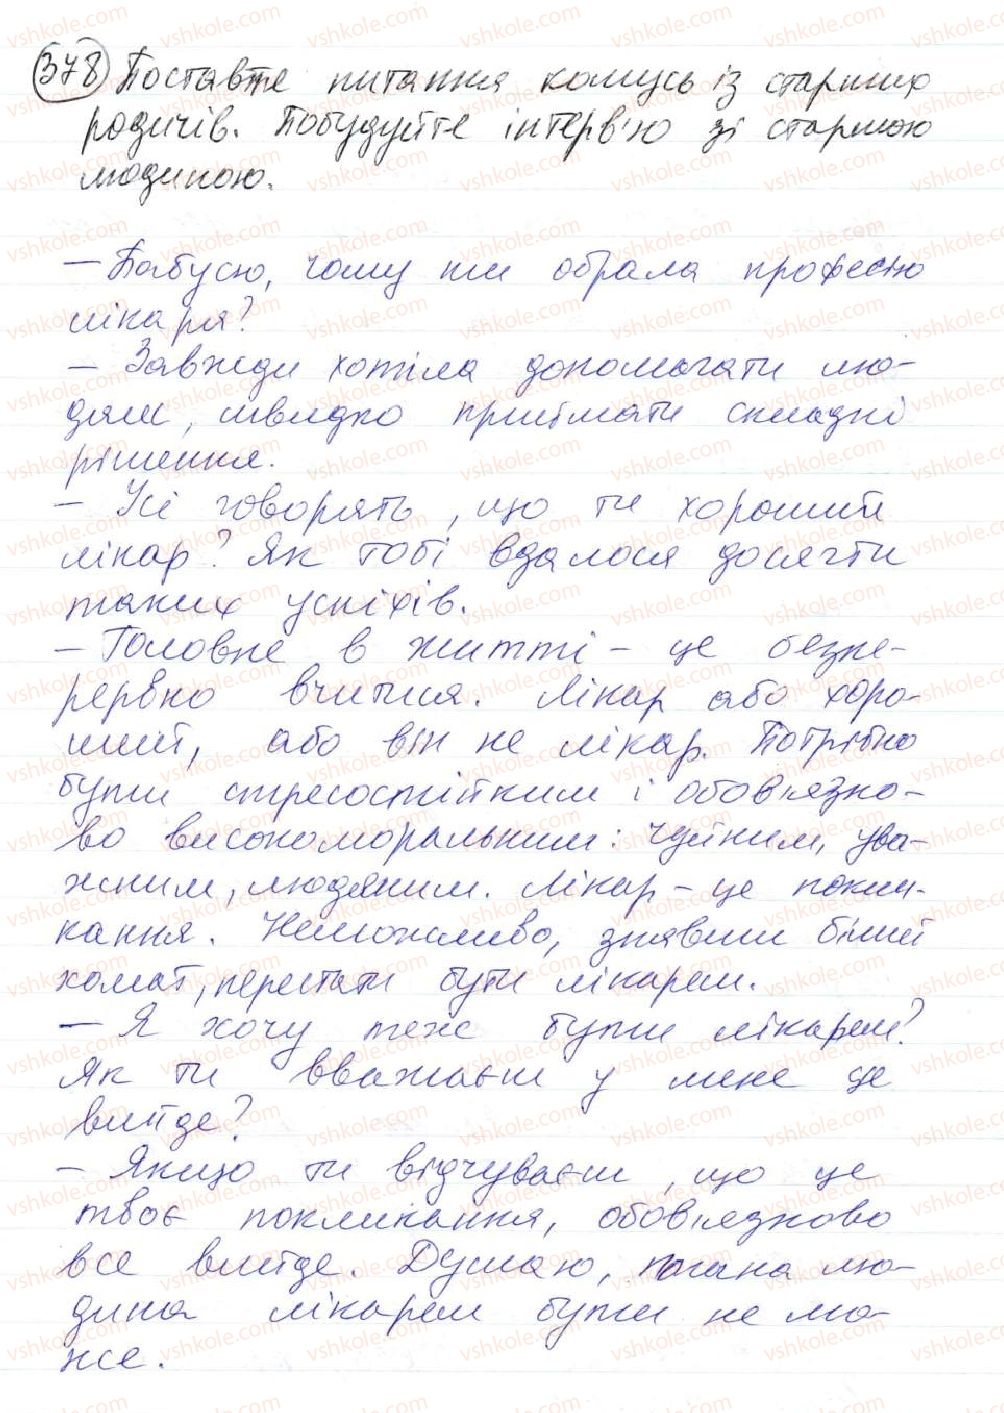 378 Поставте питання комусь із старших
родичів. Побудуйте інтерв'ю зі старшою
людиною.
– Бабусю, чому ти обрала професію
лікаря?
– Завжди хотіла допомагати лю-
дям, швидко приймати складні
рішення.
– Усі говорять, що ти хороший
лікар? Як тобі вдалося досягти
таких успіхів.
– Головне в житті – це безпе-
рервно вчитися. Лікар або хоро-
ший, або він не лікар. Потрібно
бути стресостійким і обов'язко-
во високоморальним: чуйним, ува-
жним, людяним. Лікар – це покли-
кання. Неможливо, знявши білий
халат, перестати бути лікарем.
– Я хочу теж бути лікарем?
Як ти вважаєш у мене це
вийде?
– Якщо ти відчуваєш, що це
твоє покликання, обов'язково
все вийде. Думаю, погана лю-
дина лікарем бути не мо-
же.